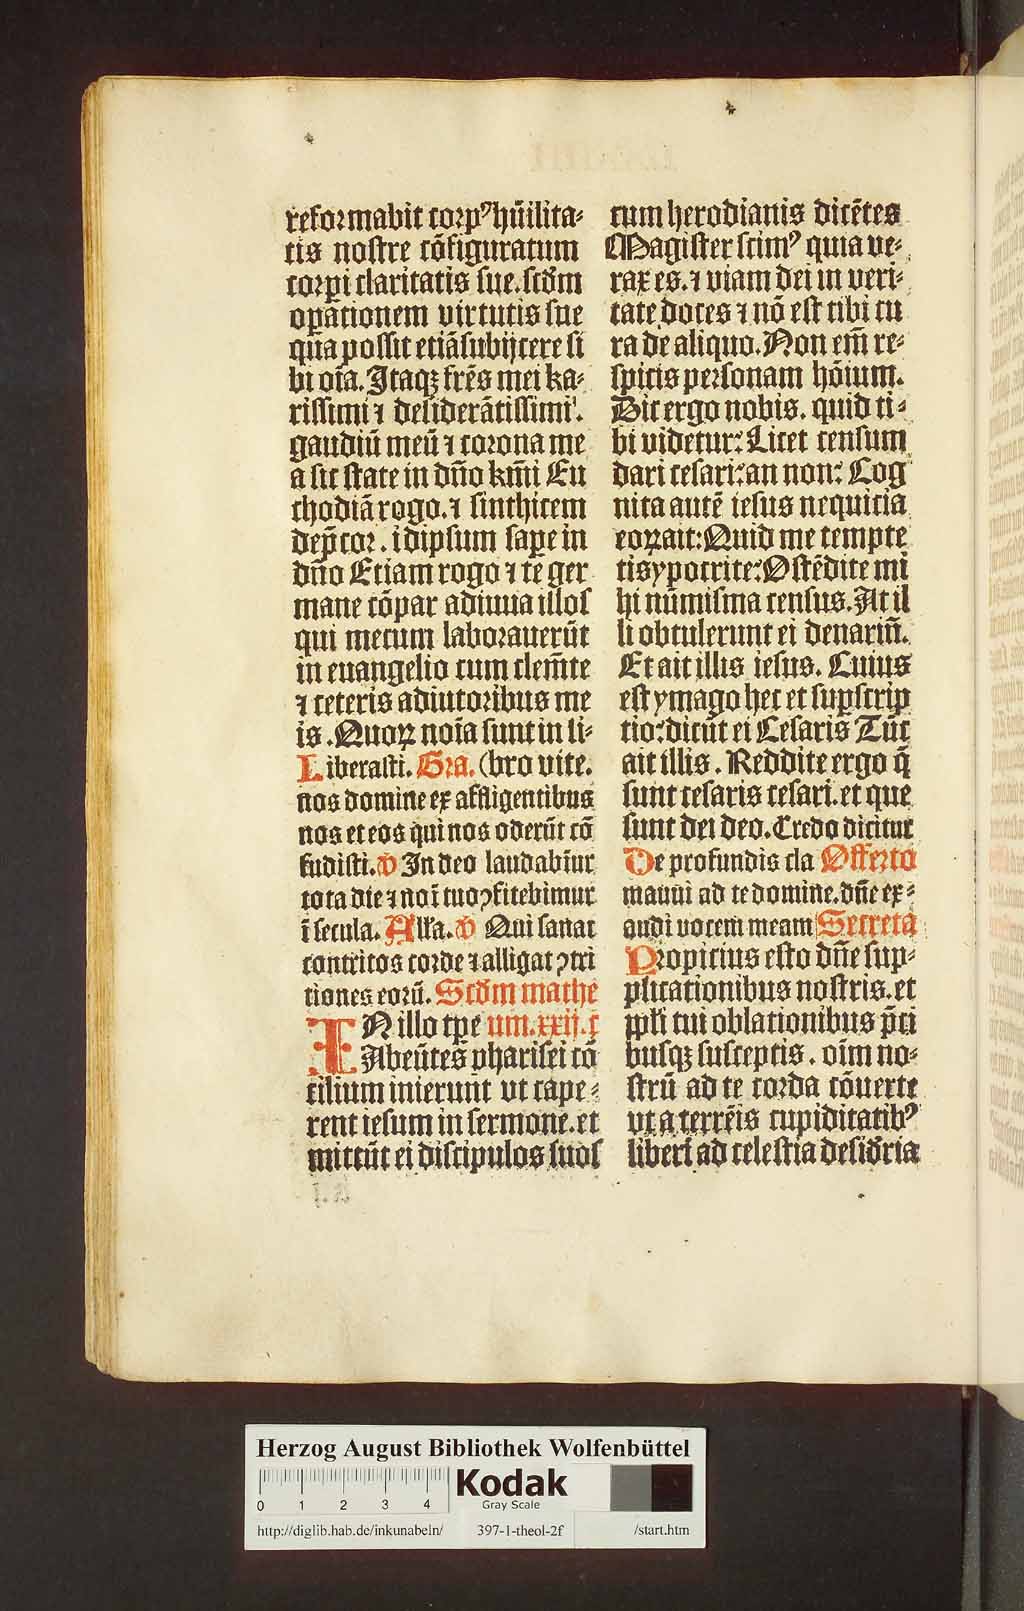 reformabit corpꝰ hūilita⸗
tis nostre cōfiguratum
corpi claritatis sue. scd̄m
oꝑationem virtutis sue
qua possit etiā subijcere si
bi oīa. Itaqꝫ frēs mei ka⸗
rissimi ⁊ desiderātissimi.
gaudiū meū ⁊ corona me
a sic state in dn̄o km̄i Eu
chodiā rogo. ⁊ sinthicem
dep̄cor. idipsum saꝑe in
dn̄o Etiam rogo ⁊ te ger
mane cōpar adiuua illos
qui mecum laborauerūt
in euangelio cum clem̄te
⁊ ceteris adiutoribus me
is. Quoꝝ noīa sunt in li⸗
Liberasti. Gra. (bro vite.
nos domine ex affligentibus
nos et eos qui nos oderūt cō
fudisti. v In deo laudabīur
tota die ⁊ noī tuo ꝯfitebimur
ī secula. All'a. v Qui sanat
contritos corde ⁊ alligat ꝯtri
tiones eorū. Scd̄m mathe
IN illo tꝑe um. xxij. c
Abeūtes pharisei cō
cilium inierunt vt cape⸗
rent iesum in sermone. et
mittūt ei discipulos suos
cum herodianis dicētes
Magister scimꝰ quia ve⸗
rax es. ⁊ viam dei in veri⸗
tate doces ⁊ nō est tibi cu
ra de aliquo. Non em̄ re⸗
spicis personam hōium.
Dic ergo nobis. quid ti⸗
bi videtur: Licet censum
dari cesari: an non: Cog
nita autē iesus nequicia
eoꝝ ait: Quid me tempte
tis ypocrite: Ostēdite mi
hi nūmisma census. At il
li obtulerunt ei denariū.
Et ait illis iesus. Cuius
est ymago hec et suꝑscrip
tio: dicūt ei Cesaris Tūc
ait illis. Reddite ergo q̄
sunt cesaris cesari. et que
sunt dei deo. Credo dicitur
De profundis cla Offerto
maui ad te domine. dn̄e ex⸗
audi vocem meam Secreta
Propicius esto dn̄e sup⸗
plicationibus nostris. et
ppl'i tui oblationibus p̄ci
busqꝫ susceptis. oīm no⸗
strū ad te corda cōuerte
vt a terrēis cupiditatibꝰ
liberi ad celestia desid̄ria
Herzog August Bibliothek Wolfenbüttel
0 1 2 3 4
Kodak
Gray Scale
http://diglib.hab.de/inkunabeln/ 397-1-theol-2f /start.htm